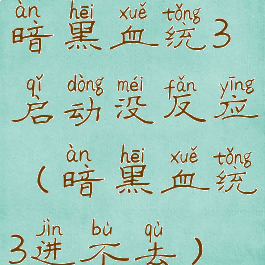 àn hēi xuě tǒng
暗黑血统3
qǐ dòng méi fǎn yīng
启动没反应
àn hēi xuě tǒng
（暗黑血统
jìn bù qù
3进不去）